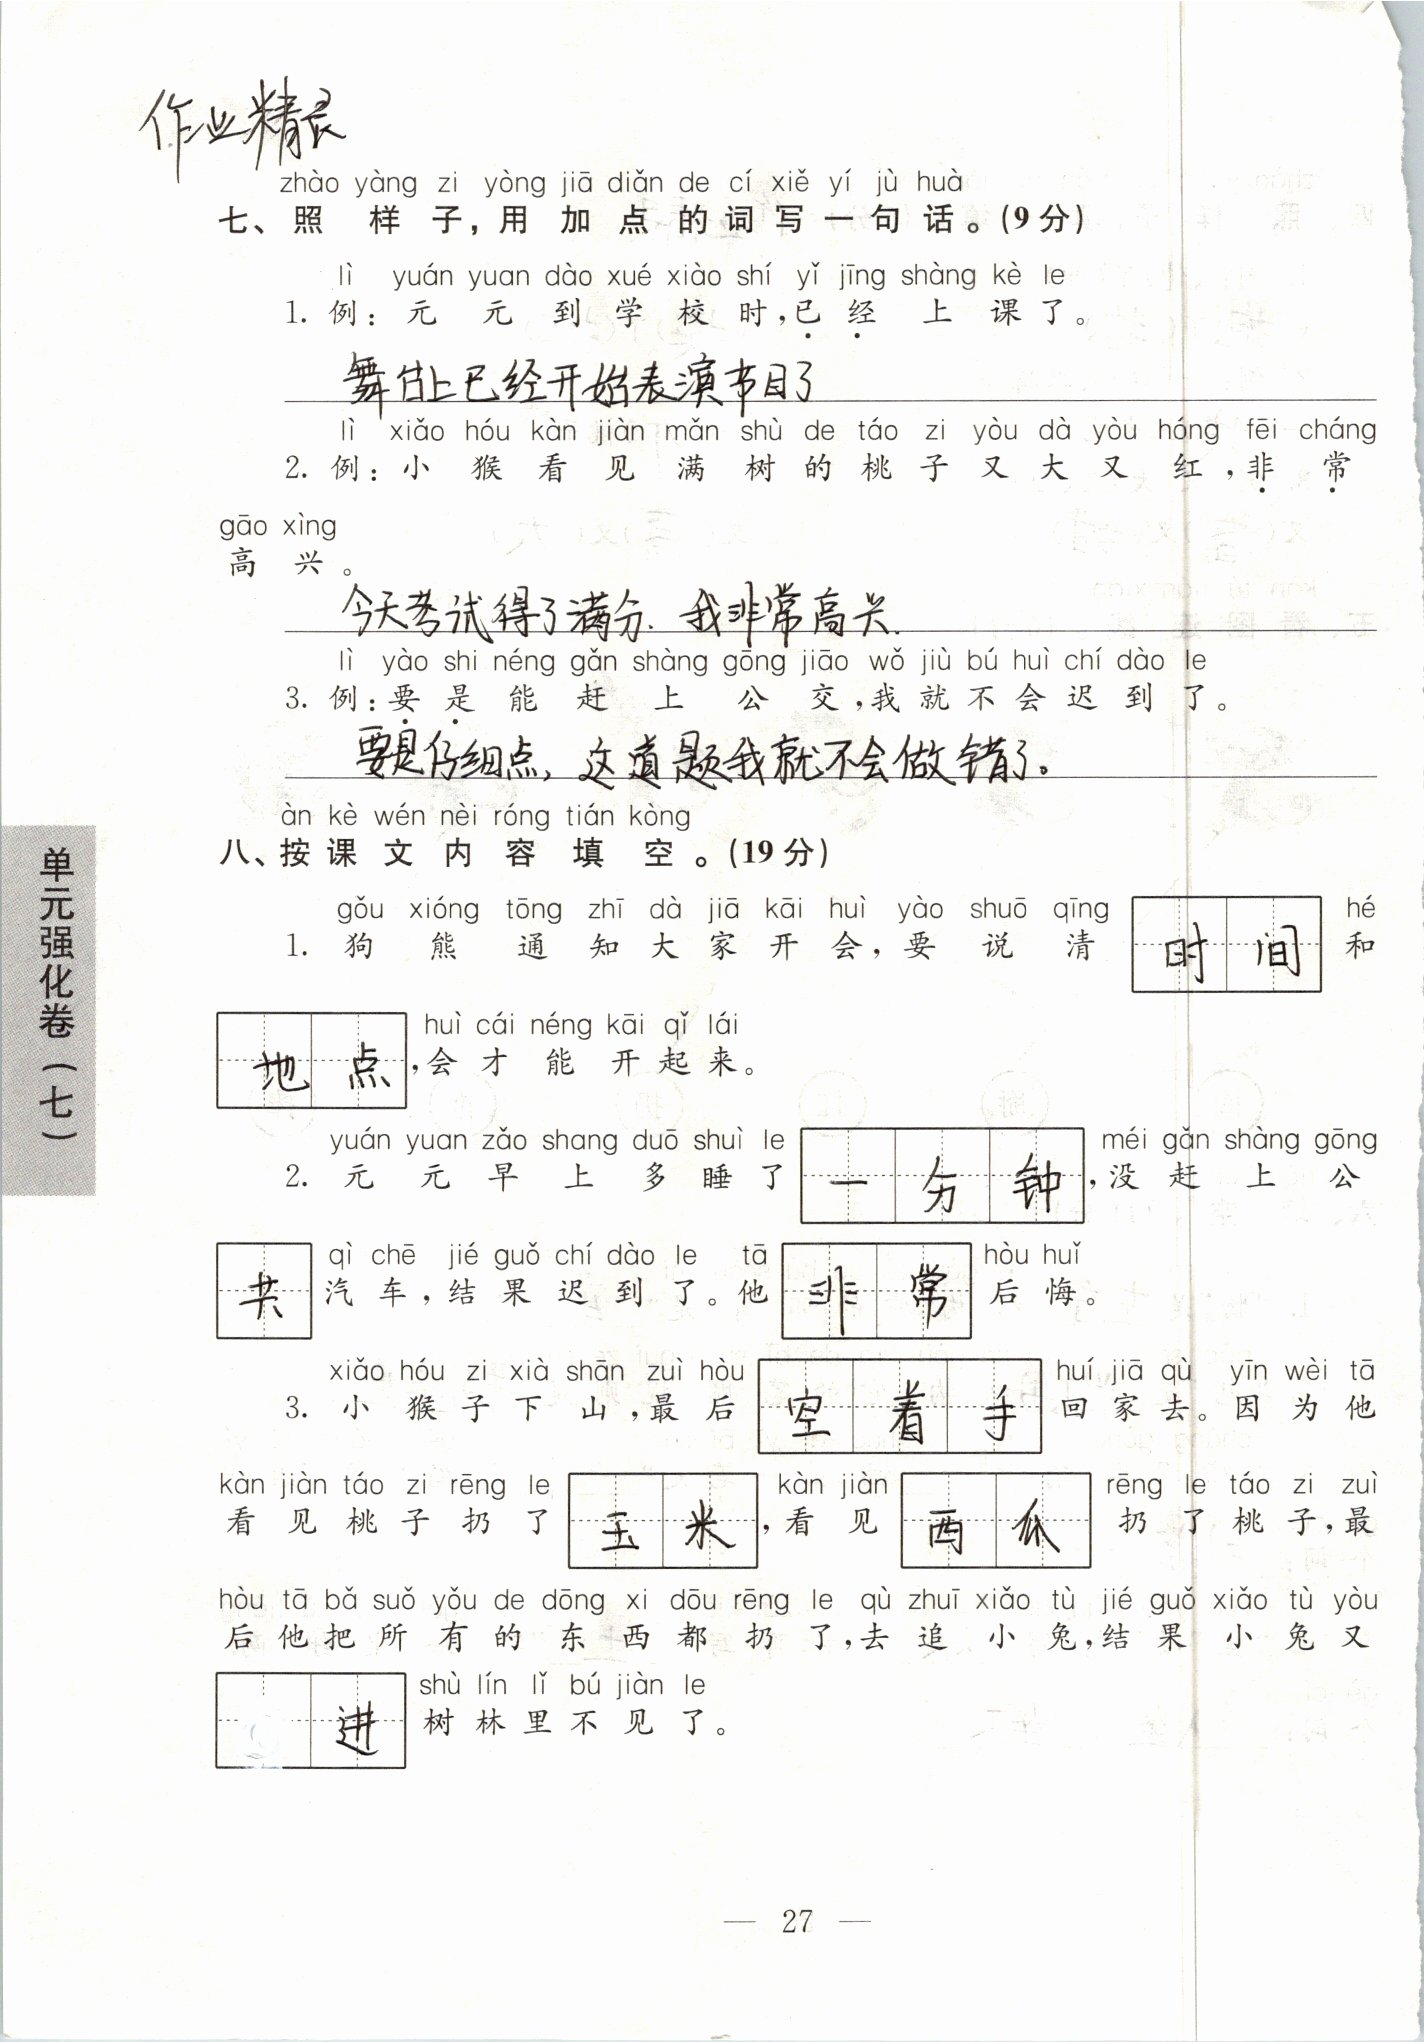 作业精灵
zhào yàng zi yòng jiā diǎn de cí xiě yí jù huà
七、照样子，用加点的词写一句话。(9分)
lì yuán yuan dào xué xiào shí yǐ jīng shàng kè le
1. 例：元元到学校时，已经上课了。
舞台上已经开始表演节目了
lì xiǎo hóu kàn jiàn mǎn shù de táo zi yòu dà yòu hóng fēi cháng
2. 例：小猴看见满树的桃子又大又红，非常
gāo xìng
高兴。
今天考试得了满分.我非常高兴.
lì yào shi néng gǎn shàng gōng jiāo wǒ jiù bú huì chí dào le
3. 例：要是能赶上公交，我就不会迟到了。
要是仔细点，这道题我就不会做错了。
àn kè wén nèi róng tián kòng
八、按课文内容填空。(19分)
gǒu xióng tōng zhī dà jiā kāi huì yào shuō qīng hé
1. 狗熊通知大家开会，要说清时间和
huì cái néng kāi qǐ lái
地点，会才能开起来。
yuán yuan zǎo shang duō shuì le méi gǎn shàng gōng
2. 元元早上多睡了一分钟，没赶上公
qì chē jié guǒ chí dào le tā hòu huǐ
共汽车，结果迟到了。他非常后悔。
xiǎo hóu zi xià shān zuì hòu huí jiā qù yīn wèi tā
3. 小猴子下山，最后空着手回家去。因为他
kàn jiàn táo zi rēng le kàn jiàn rēng le táo zi zuì
看见桃子扔了玉米，看见西瓜扔了桃子，最
hòu tā bǎ suǒ yǒu de dōng xi dōu rēng le qù zhuī xiǎo tù jié guǒ xiǎo tù yòu
后他把所有的东西都扔了，去追小兔，结果小兔又
shù lín lǐ bú jiàn le
进树林里不见了。
单元强化卷（七）
— 27 —